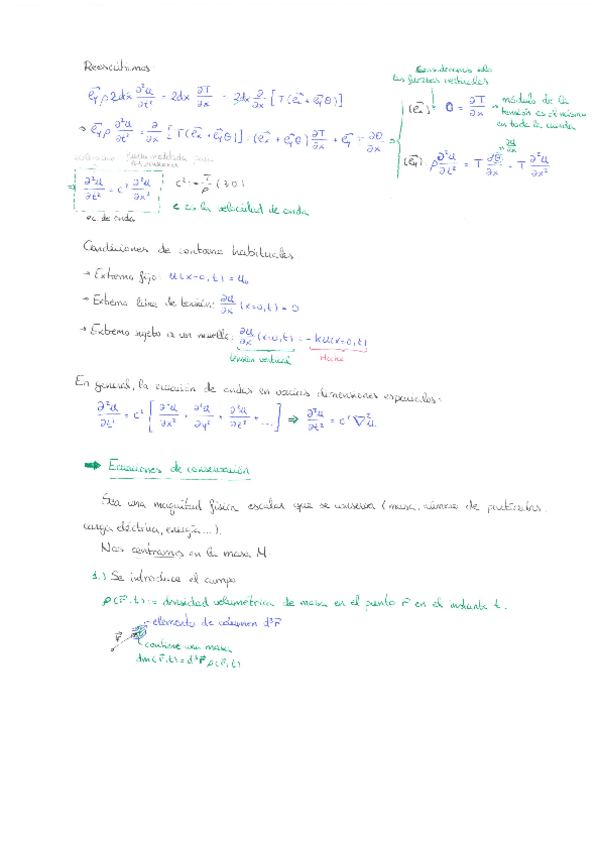 Reescribimos:
Consideramos sólo
las fuerzas verticales
e⃗y ρ 2dx ∂²u/∂t² = 2dx ∂T⃗/∂x = 2dx ∂/∂x [T(e⃗x + e⃗yθ)]
(e⃗x) 0 = ∂T/∂x → módulo de la
tensión es el mismo
en toda la cuerda
⇒ e⃗y ρ ∂²u/∂t² = ∂/∂x [T(e⃗x + e⃗yθ)] = (e⃗x + e⃗yθ) ∂T/∂x + e⃗y T ∂θ/∂x ⇒
(e⃗y) ρ ∂²u/∂t² = T ∂θ/∂x = T ∂²u/∂x²
⇒ ∂²u/∂t² = c² ∂²u/∂x²
c² = T/ρ (≥0)
c es la velocidad de onda
ec. de onda
Condiciones de contorno habituales
→ Extremo fijo: u(x=0,t) = u₀
→ Extremo libre de tensión: ∂u/∂x (x=0,t) = 0
→ Extremo sujeto a un muelle: ∂u/∂x (x=0,t) = -ku(x=0,t)
tensión vertical
En general, la ecuación de ondas en varias dimensiones espaciales:
∂²u/∂t² = c² [∂²u/∂x² + ∂²u/∂y² + ∂²u/∂z² + ...] ⇒ ∂²u/∂t² = c² ∇²u
➡ Ecuaciones de conservación
Sea una magnitud física escalar que se conserva (masa, número de partículas,
carga eléctrica, energía...).
Nos centramos en la masa M
1.) Se introduce el campo
ρ(r⃗,t) := densidad volumétrica de masa en el punto r⃗ en el instante t.
elemento de volumen d³r⃗
r⃗
contiene una masa
dm(r⃗,t) = d³r⃗ ρ(r⃗,t)